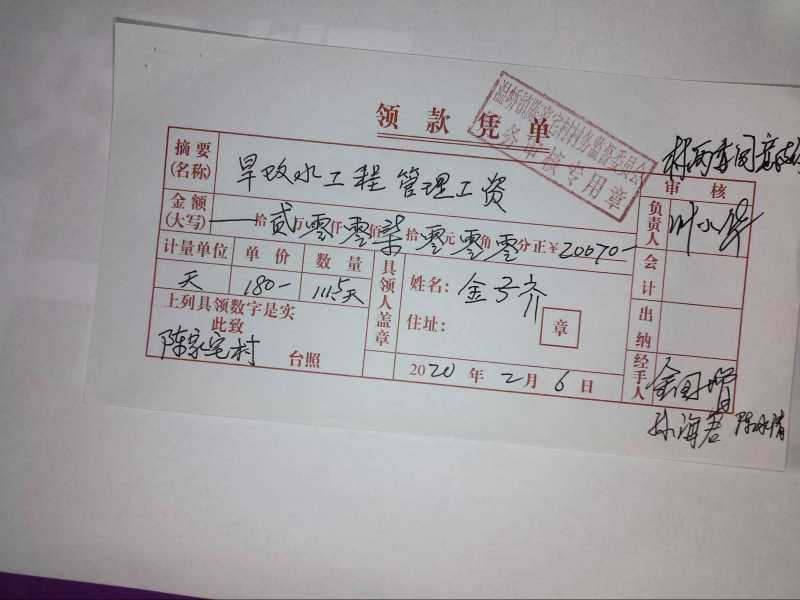 领款凭单
务审核专用章
摘要(名称) 旱改水工程 管理工资
审核
金额(大写) 拾贰万零仟零佰柒拾零元零角零分正¥20070-
负责人
计量单位 单价 数量
天 180- 111.5天
具领人盖章
姓名: 金子齐
住址:
章
会计
出纳
上列具领数字是实
此致
陈家宅村 台照
2020年2月6日
经手人
孙海君